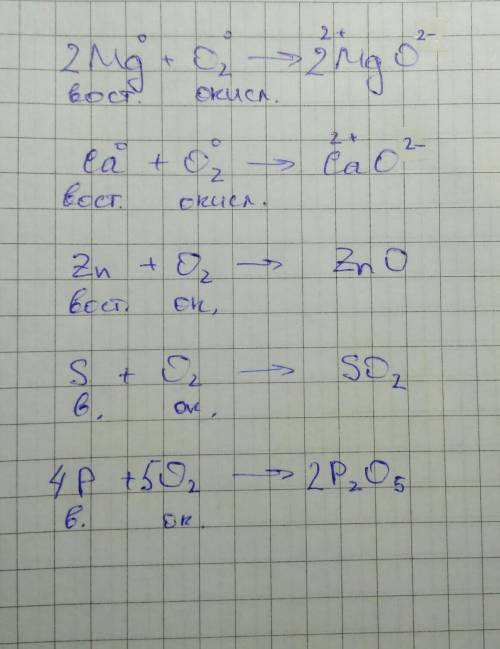 2Mg⁰ + O₂⁰ → 2Mg²⁺O²⁻
вост. окисл.
Ca⁰ + O₂⁰ → Ca²⁺O²⁻
вост. окисл.
Zn + O₂ → ZnO
вост. ок,
S + O₂ → SO₂
в. ок,
4P + 5O₂ → 2P₂O₅
в. ок.